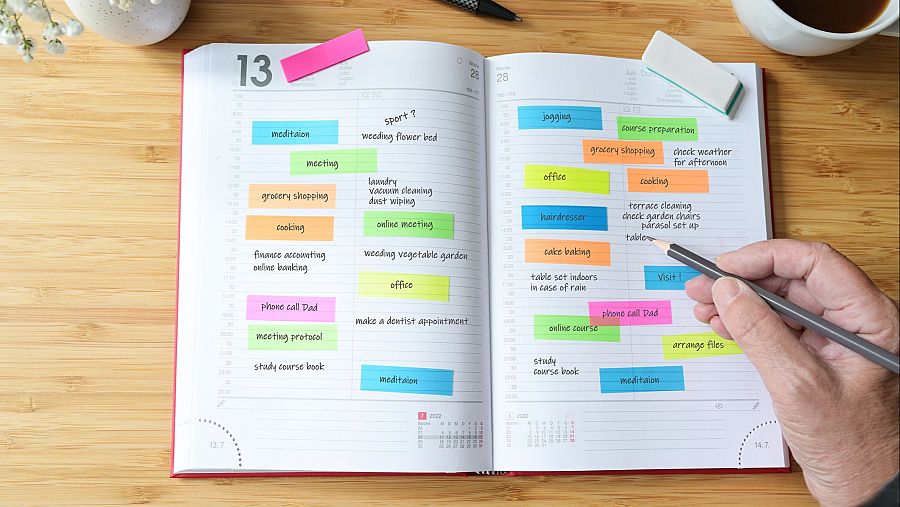 13
28
sport ?
meditaion
weeding flower bed
meeting
laundry
vacuum cleaning
dust wiping
grocery shopping
online meeting
cooking
finance accounting
online banking
weeding vegetable garden
office
phone call Dad
make a dentist appointment
meeting protocol
study course book
meditaion
7 2022
13. 7.
28
jogging
course preparation
grocery shopping
check weather
for afternoon
office
cooking
terrace cleaning
check garden chairs
parasol set up
hairdresser
table
cake baking
table set indoors
in case of rain
Visit !
phone call Dad
online course
arrange files
study
course book
meditaion
8 2022
14. 7.